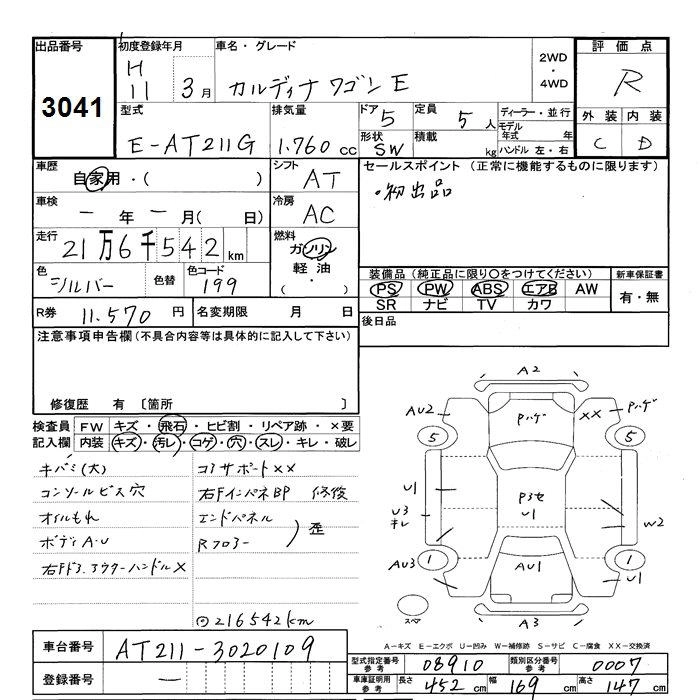 出品番号
3041
初度登録年月
H
11 3月
車名・グレード
カルディナ ワゴン E
2WD
・
4WD
評価点
R
外装 内装
C D
型式
E-AT211G
排気量
1.760 cc
ドア 5
形状 SW
定員 5 人
積載 kg
ディーラー・並行
モデル年式 年
ハンドル 左・右
車歴
自家用・( )
シフト
AT
車検
一 年 一 月( 日)
冷房
AC
走行
21万6千542 km
燃料
ガソリン
軽油
( ・ )
色
シルバー
色替
色コード
199
R券 11.570 円
名変期限 月 日
セールスポイント (正常に機能するものに限ります)
・初出品
装備品(純正品に限り○をつけてください)
PS PW ABS エアB AW
SR ナビ TV カワ
新車保証書
有・無
後日品
注意事項申告欄(不具合内容等は具体的に記入して下さい)
修復歴 有 〔箇所 〕
検査員記入欄
FW キズ・飛石・ヒビ割・リペア跡・×要
内装 キズ・汚レ・コゲ・穴・スレ・キレ・破レ
キバミ(大)
コンソールビス穴
オイルもれ
ボディA・U
右Fドアアウターハンドル×
コアサポートXX
右FインパネBP 修復
エンドパネル
Rフロアー
歪
216542km
A2
AU2
Pハゲ
XX Pハゲ
5 5
U1
U3
キレ
Pヨセ
U1
W2
AU3
1
AU1
1
U1
スペア
A3
A-キズ E-エクボ U-凹み W-補修跡 S-サビ C-腐食 XX-交換済
車台番号 AT211-3020109
登録番号 ー
型式指定番号 参考 08910
類別区分番号 参考 0007
車庫証明用 参考 長さ 452 cm 幅 169 cm 高さ 147 cm